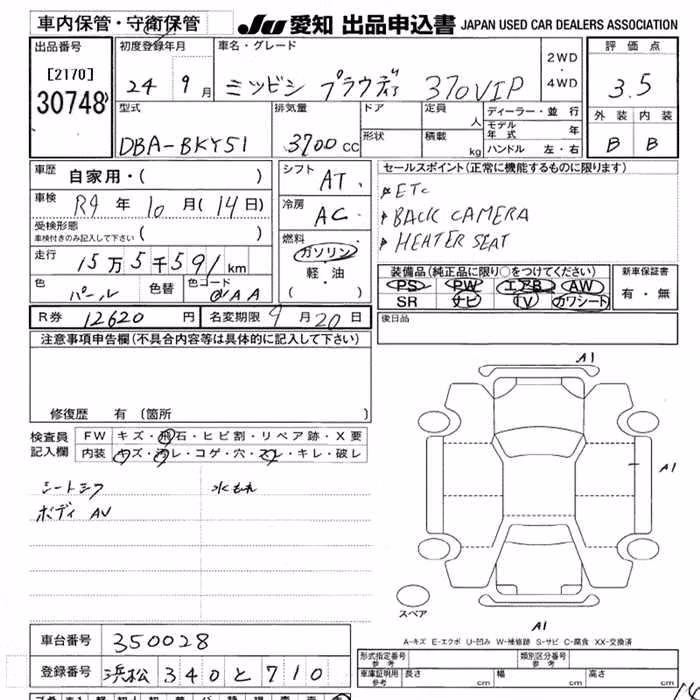 車内保管・守衛保管 JU 愛知 出品申込書 JAPAN USED CAR DEALERS ASSOCIATION
出品番号 初度登録年月 車名・グレード 2WD 評価点
[2170] 24 9月 ミツビシ プラウディア 370VIP ・ 3.5
30748 4WD
型式 排気量 ドア 定員 人 ディーラー・並行 外装 内装
DBA-BKY51 3700cc 形状 積載 kg モデル年式 年 B B
ハンドル 左・右
車歴 自家用・( ) シフト AT セールスポイント(正常に機能するものに限ります)
車検 R9年10月(14日) 冷房 AC ETC
受検形態 BACK CAMERA
車検付きのみ記入して下さい ( ) 燃料 HEATER SEAT
走行 15万5千591km ガソリン
色 パール 色替 色コード QAA 軽・油 ( )
装備品(純正品に限り○をつけてください) 新車保証書
PS PW エアB AW 有・無
SR ナビ TV カワシート
R券 12620円 名変期限 9月20日 後日品
注意事項申告欄(不具合内容等は具体的に記入して下さい)
修復歴 有 (箇所 )
検査員 FW キズ・飛石・ヒビ割・リペア跡・X要
記入欄 内装 キズ・汚レ・コゲ・穴・スレ・キレ・破レ
シートシワ 水もれ
ボディ AU
A1
A1
スペア A1
A-キズ E-エクボ U-凹み W-補修跡 S-サビ C-腐食 XX-交換済
車台番号 350028
登録番号 浜松 340 と 710
形式指定番号 参考 類別区分番号 参考
車庫証明用 参考 長さ cm 幅 cm 高さ cm